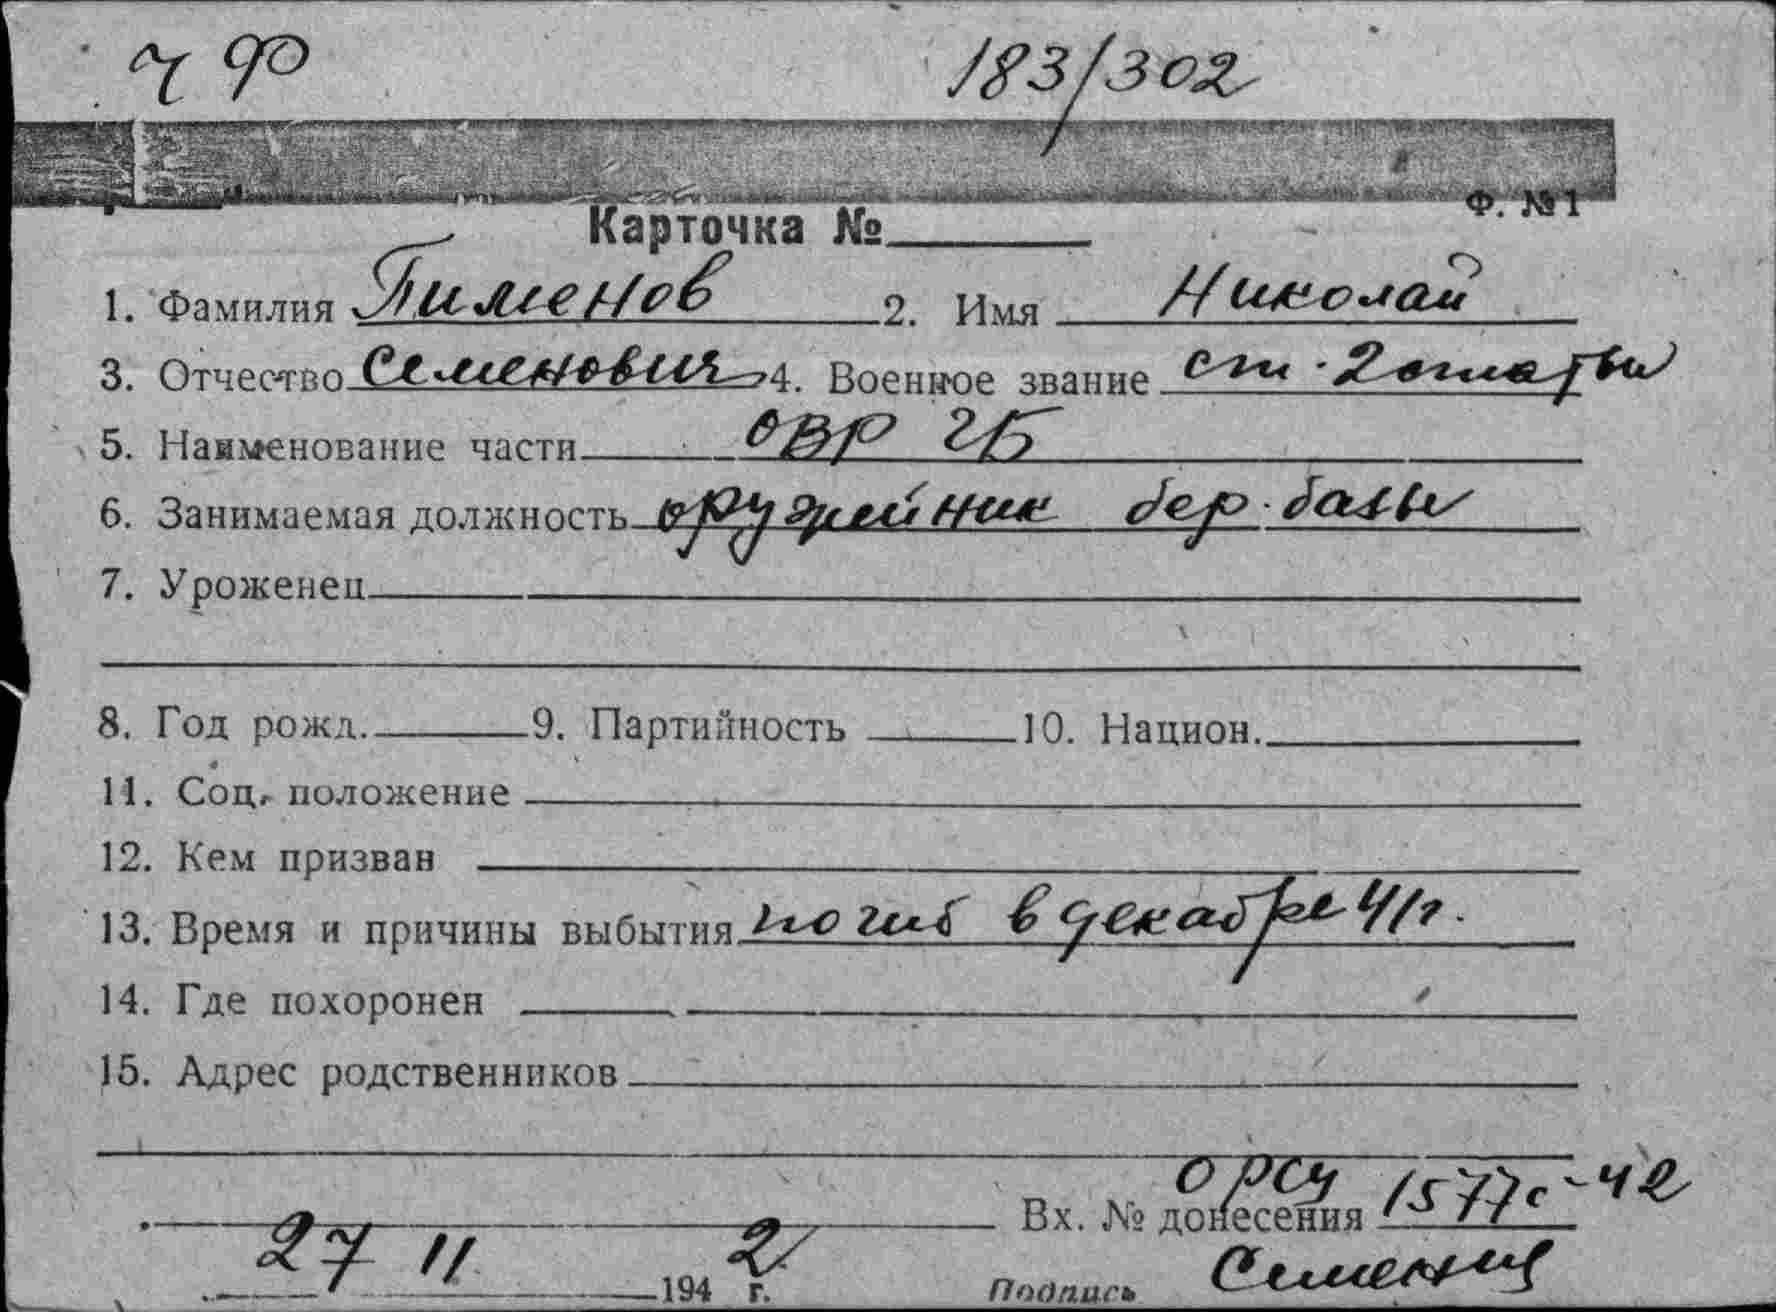 ЧФ 183/302
Ф. №1
Карточка №
1. Фамилия Пименов 2. Имя Николай
3. Отчество Семенович 4. Военное звание ст. 2 статьи
5. Наименование части ОВР ГБ
6. Занимаемая должность оружейник бер. базы
7. Уроженец
8. Год рожд. 9. Партийность 10. Национ.
11. Соц. положение
12. Кем призван
13. Время и причины выбытия погиб в декабре 41г.
14. Где похоронен
15. Адрес родственников
Вх. № донесения орсу 1577с-42
27 11 1942 г. Подпись